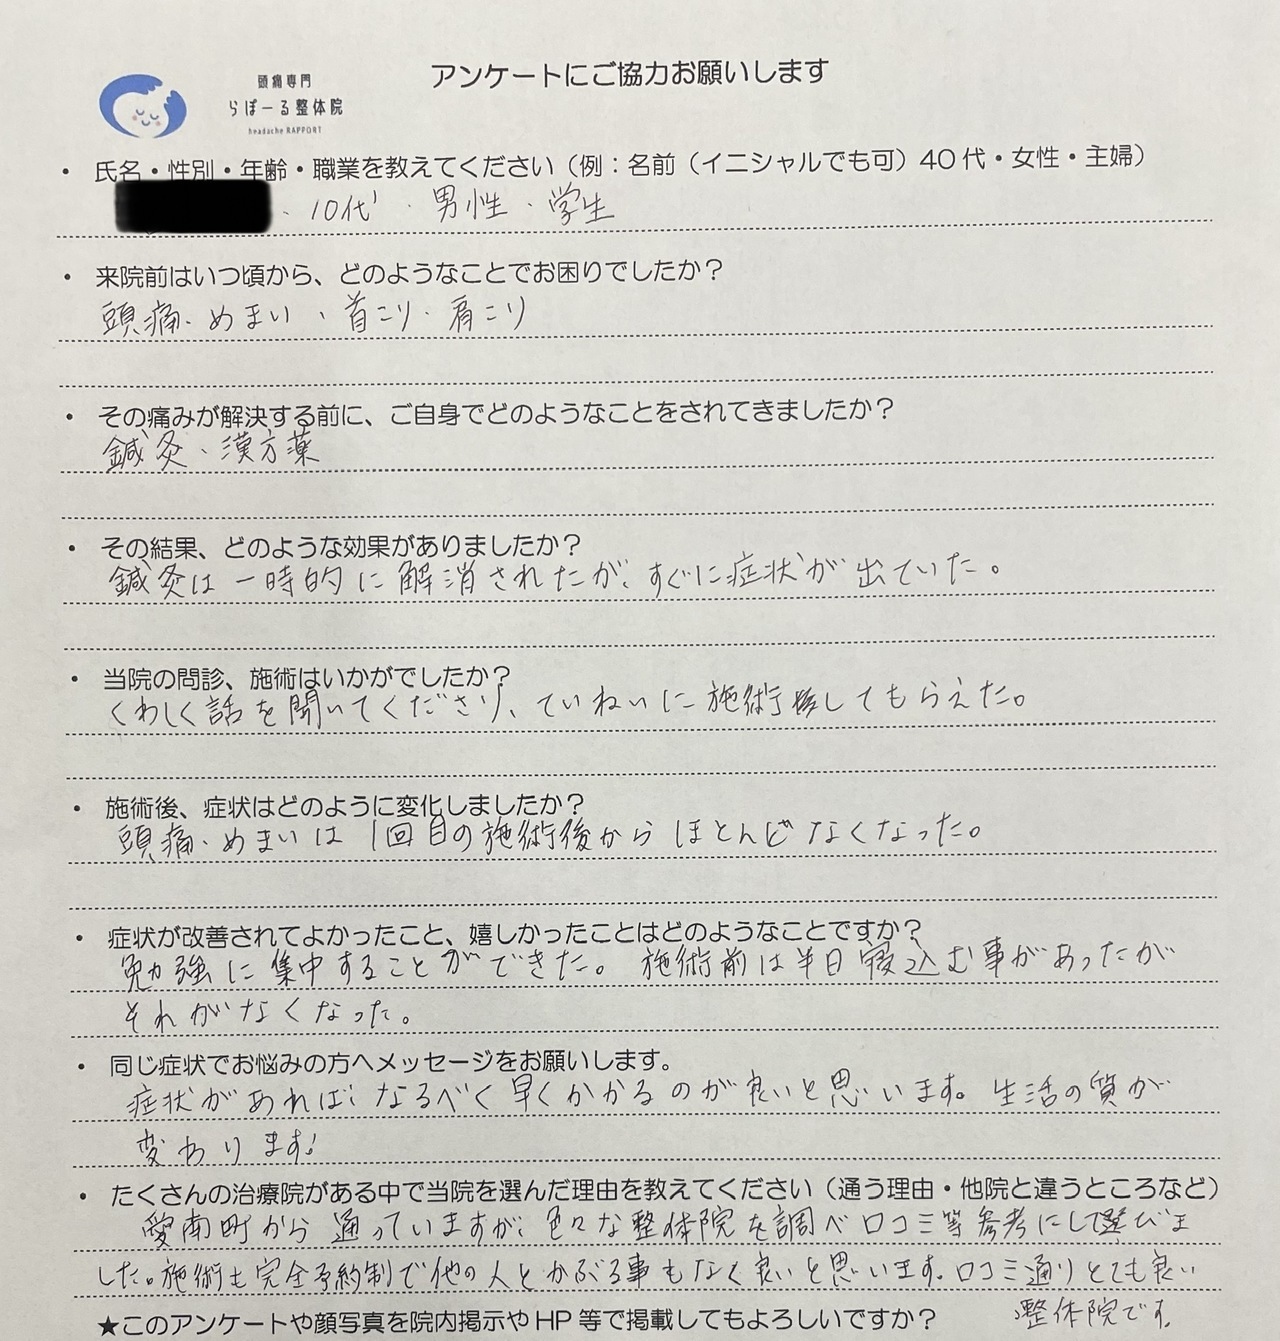 アンケートにご協力お願いします
頭痛専門
らぽーる整体院
headache RAPPORT
・氏名・性別・年齢・職業を教えてください（例：名前（イニシャルでも可）40代・女性・主婦）
・10代・男性・学生
・来院前はいつ頃から、どのようなことでお困りでしたか？
頭痛・めまい・首こり・肩こり
・その痛みが解決する前に、ご自身でどのようなことをされてきましたか？
鍼灸、漢方薬
・その結果、どのような効果がありましたか？
鍼灸は一時的に解消されたが、すぐに症状が出ていた。
・当院の問診、施術はいかがでしたか？
くわしく話を聞いてくださり、ていねいに施術してもらえた。
・施術後、症状はどのように変化しましたか？
頭痛、めまいは1回目の施術後からほとんどなくなった。
・症状が改善されてよかったこと、嬉しかったことはどのようなことですか？
勉強に集中することができた。施術前は半日寝込む事があったが
それがなくなった。
・同じ症状でお悩みの方へメッセージをお願いします。
症状があれば、なるべく早くかかるのが良いと思います。生活の質が
変わります!
・たくさんの治療院がある中で当院を選んだ理由を教えてください（通う理由・他院と違うところなど）
愛南町から通っていますが、色々な整体院を調べ口コミ等参考にして選びま
した。施術も完全予約制で他の人とかぶる事もなく良いと思います。口コミ通りとても良い
整体院です。
★このアンケートや顔写真を院内掲示やHP等で掲載してもよろしいですか？